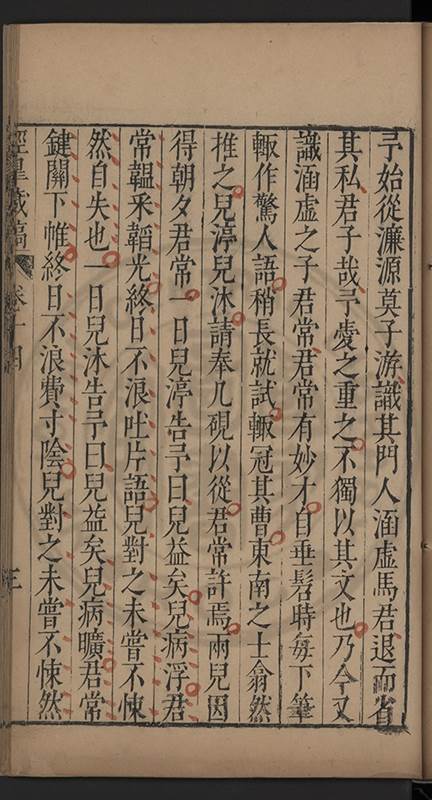 予始從濂源莫子游識其門人涵虛馬君退而省
其私君子哉予愛之重之不獨以其文也乃今又
識涵虛之子君常君常有妙才自垂髫時每下筆
輙作驚人語稍長就試輙冠其曹東南之士翕然
推之兒渟兒沐請奉几硯以從君常許焉兩兒因
得朝夕君常一日兒渟告予曰兒益矣兒病浮君
常韞釆韜光終日不浪吐片語兒對之未嘗不悚
然自失也一日兒沐告予曰兒益矣兒病曠君常
鍵關下帷終日不浪費寸陰兒對之未嘗不悚然
涇皐藏稿 卷十四 三